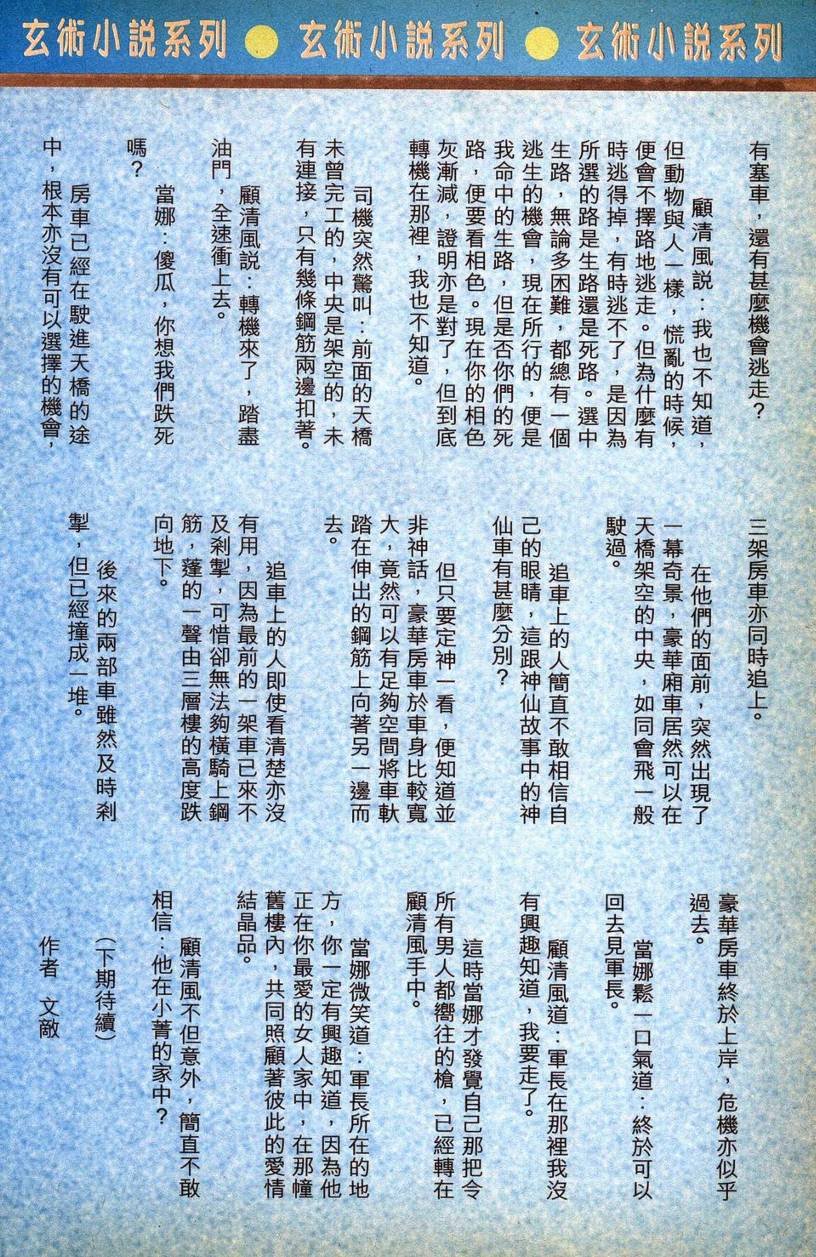 玄術小説系列 ● 玄術小説系列 ● 玄術小説系列
有塞車，還有甚麼機會逃走？
顧清風説：我也不知道，
但動物與人一樣，慌亂的時候，
便會不擇路地逃走。但為什麼有
時逃得掉，有時逃不了，是因為
所選的路是生路還是死路。選中
生路，無論多困難，都總有一個
逃生的機會，現在所行的，便是
我命中的生路，但是否你們的死
路，便要看相色。現在你的相色
灰漸減，證明亦是對了，但到底
轉機在那裡，我也不知道。
司機突然驚叫：前面的天橋
未曾完工的，中央是架空的，未
有連接，只有幾條鋼筋兩邊扣著。
顧清風説：轉機來了，踏盡
油門，全速衝上去。
當娜：傻瓜，你想我們跌死
嗎？
房車已經在駛進天橋的途
中，根本亦沒有可以選擇的機會，
三架房車亦同時追上。
在他們的面前，突然出現了
一幕奇景，豪華廂車居然可以在
天橋架空的中央，如同會飛一般
駛過。
追車上的人簡直不敢相信自
己的眼睛，這跟神仙故事中的神
仙車有甚麼分別？
但只要定神一看，便知道並
非神話，豪華房車於車身比較寬
大，竟然可以有足夠空間將車軚
踏在伸出的鋼筋上向著另一邊而
去。
追車上的人即使看清楚亦沒
有用，因為最前的一架車已來不
及剎掣，可惜卻無法夠橫騎上鋼
筋，蓬的一聲由三層樓的高度跌
向地下。
後來的兩部車雖然及時剎
掣，但已經撞成一堆。
豪華房車終於上岸，危機亦似乎
過去。
當娜鬆一口氣道：終於可以
回去見軍長。
顧清風道：軍長在那裡我沒
有興趣知道，我要走了。
這時當娜才發覺自己那把令
所有男人都嚮往的槍，已經轉在
顧清風手中。
當娜微笑道：軍長所在的地
方，你一定有興趣知道，因為他
正在你最愛的女人家中，在那幢
舊樓內，共同照顧著彼此的愛情
結晶品。
顧清風不但意外，簡直不敢
相信：他在小菁的家中？
（下期待續）
作者　文敵